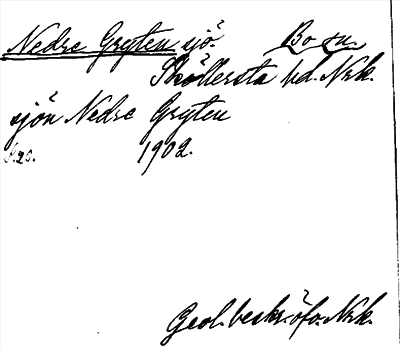 Nedre Gryten sjö. Bo sn.
Sköllersta hd. Nrk.
sjön Nedre Gryten
S. 20. 1902.
Geol. beskr. öfv. Nrk.